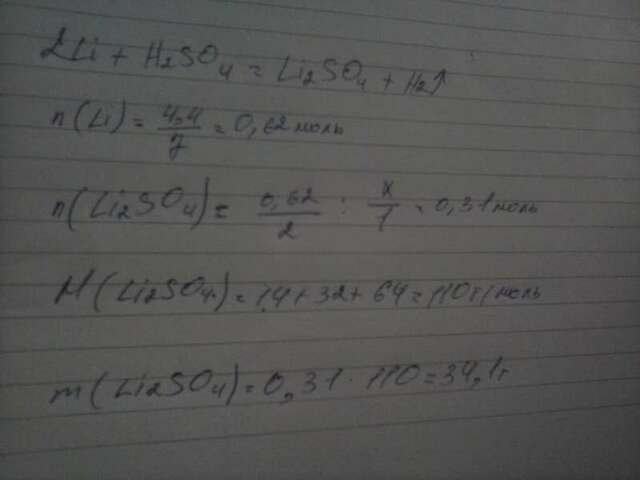 2Li + H₂SO₄ = Li₂SO₄ + H₂↑
n(Li) = 4,4/7 = 0,62 моль
n(Li₂SO₄) = 0,62/2 : x/1 = 0,31 моль
M(Li₂SO₄) = 14+32+64 = 110 г/моль
m(Li₂SO₄) = 0,31 · 110 = 34,1 г